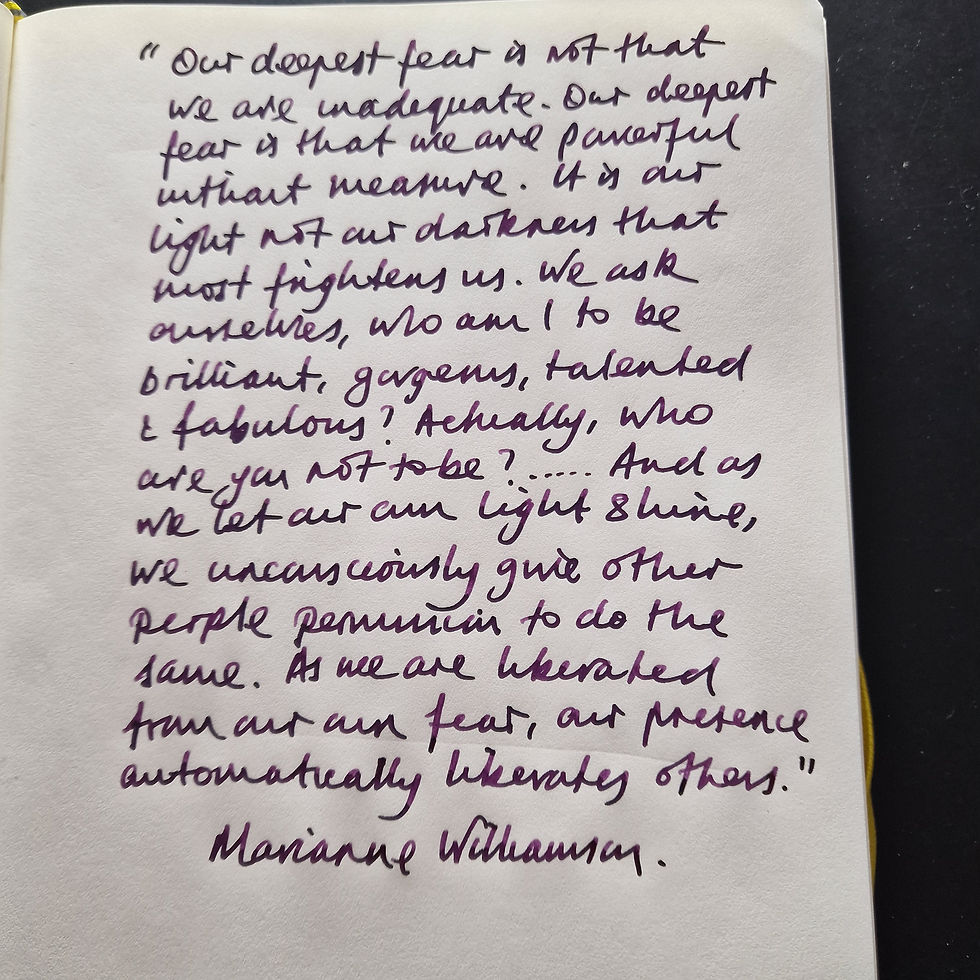 " Our deepest fear is not that
we are inadequate. Our deepest
fear is that we are powerful
without measure. It is our
light not our darkness that
most frightens us. We ask
ourselves, who am I to be
brilliant, gorgeous, talented
& fabulous? Actually, who
are you not to be?..... And as
we let our own light shine,
we unconsciously give other
people permission to do the
same. As we are liberated
from our own fear, our presence
automatically liberates others."
Marianne Williamson.